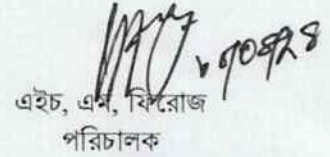 এইচ, এম, ফিরোজ
পরিচালক